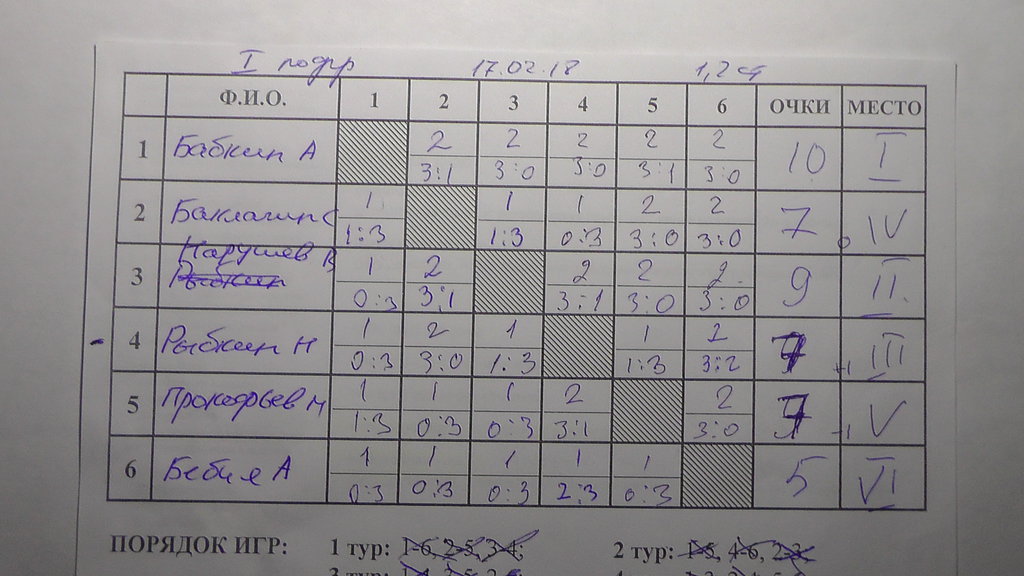 I подгр 17.02.18 1,2 ст
Ф.И.О. 1 2 3 4 5 6 ОЧКИ МЕСТО
1 Бабкин А 2 2 2 2 2 10 I
3:1 3:0 3:0 3:1 3:0
2 Баклагин С 1 1 1 2 2 7 IV
1:3 1:3 0:3 3:0 3:0 0
Нарушев В
3 Рыбкин 1 2 2 2 2 9 II
0:3 3:1 3:1 3:0 3:0
- 4 Рыбкин Н 1 2 1 1 2 7 III
0:3 3:0 1:3 1:3 3:2 +1
5 Прокофьев М 1 1 1 2 2 7 V
1:3 0:3 0:3 3:1 3:0 -1
6 Бебия А 1 1 1 1 1 5 VI
0:3 0:3 0:3 2:3 0:3
ПОРЯДОК ИГР: 1 тур: 1-6, 2-5, 3-4; 2 тур: 1-5, 4-6, 2-3;
3 тур: